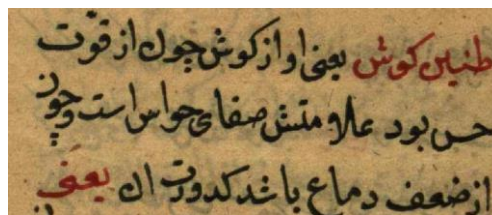 طنین کوش یعنی اواز کوش چون از قوّت
حس بود علامتش صفای حواس است و چون
از ضعف دماغ باشد کدورت ان یعنی